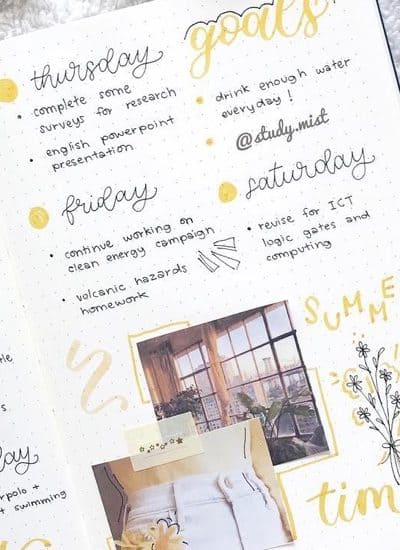 thursday
• complete some
surveys for research
• english powerpoint
presentation
goals
• drink enough water
everyday!
@study.mist
friday
• continue working on
clean energy campaign
• volcanic hazards
homework
saturday
• revise for ICT
logic gates and
computing
SUMME
tim
ay
polo +
+ swimming